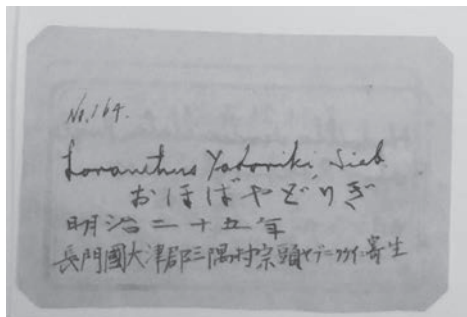 No. 164.
Loranthus Yadoriki, Sieb.
おほばやどりぎ
明治二十五年
長門國大津郡三隅村宗頭ヤブニクケイニ寄生